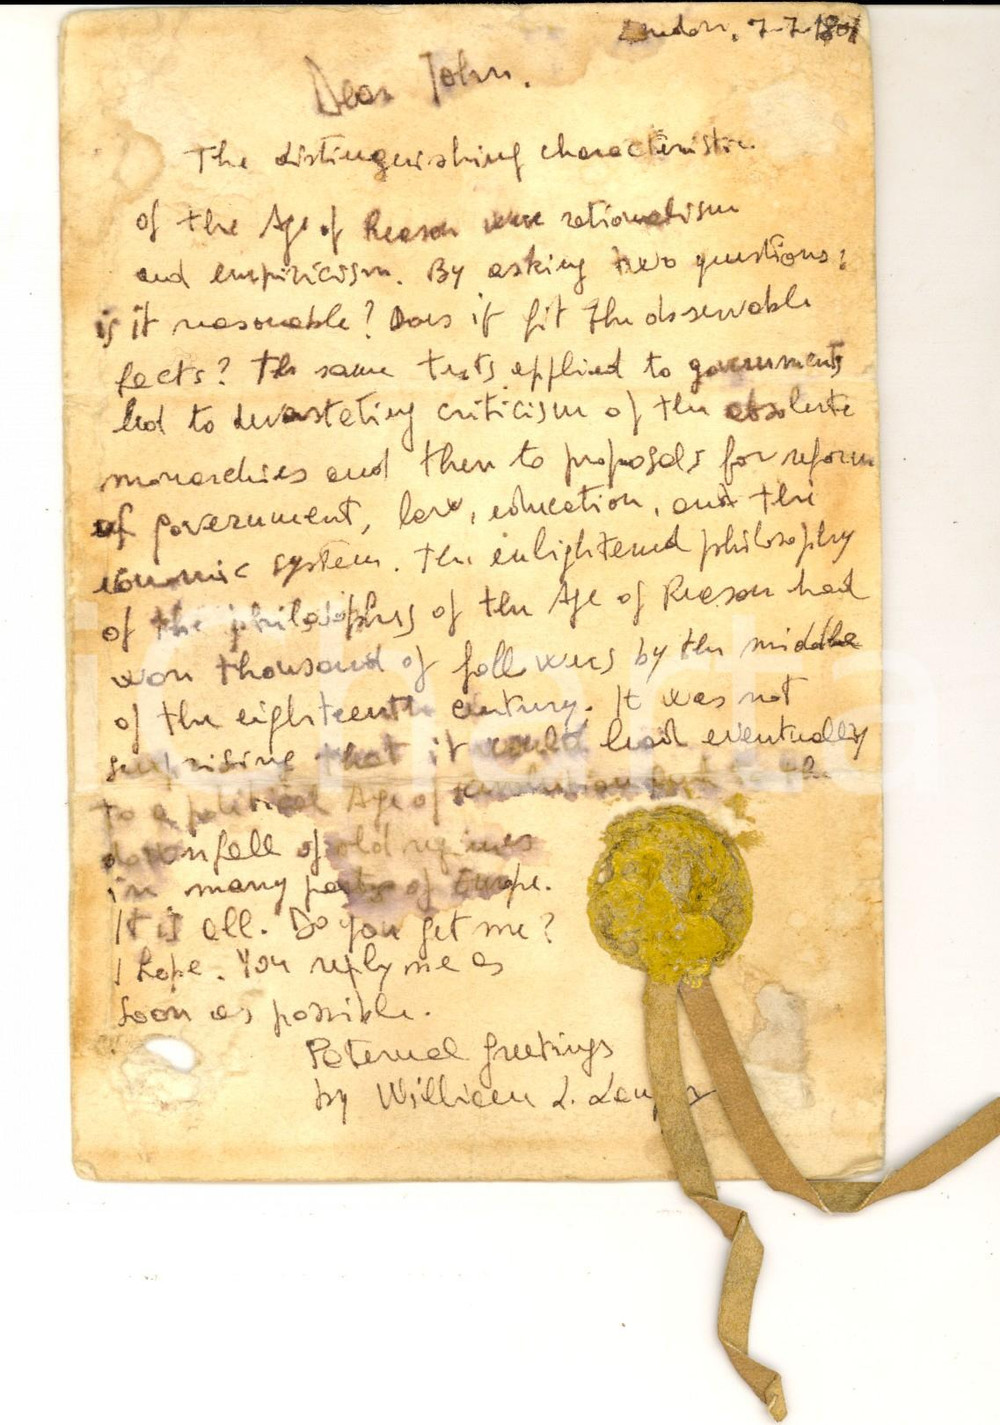 London, 7-7-1801
Dear John.
The distinguishing characteristic
of the Age of Reason were rationalism
and empiricism. By asking two questions:
is it reasonable? Does it fit the observable
facts? The same tests applied to governments
led to devastating criticism of the absolute
monarchies and then to proposals for reform
of government, law, education, and the
economic system. The enlightened philosophy
of the philosophers of the Age of Reason had
won thousand of followers by the middle
of the eighteenth century. It was not
surprising that it could lead eventually
to a political Age of revolution the
downfall of old regimes
in many parts of Europe.
It is all. Do you get me?
I hope. You reply me as
soon as possible.
Paternal greetings
by William L.